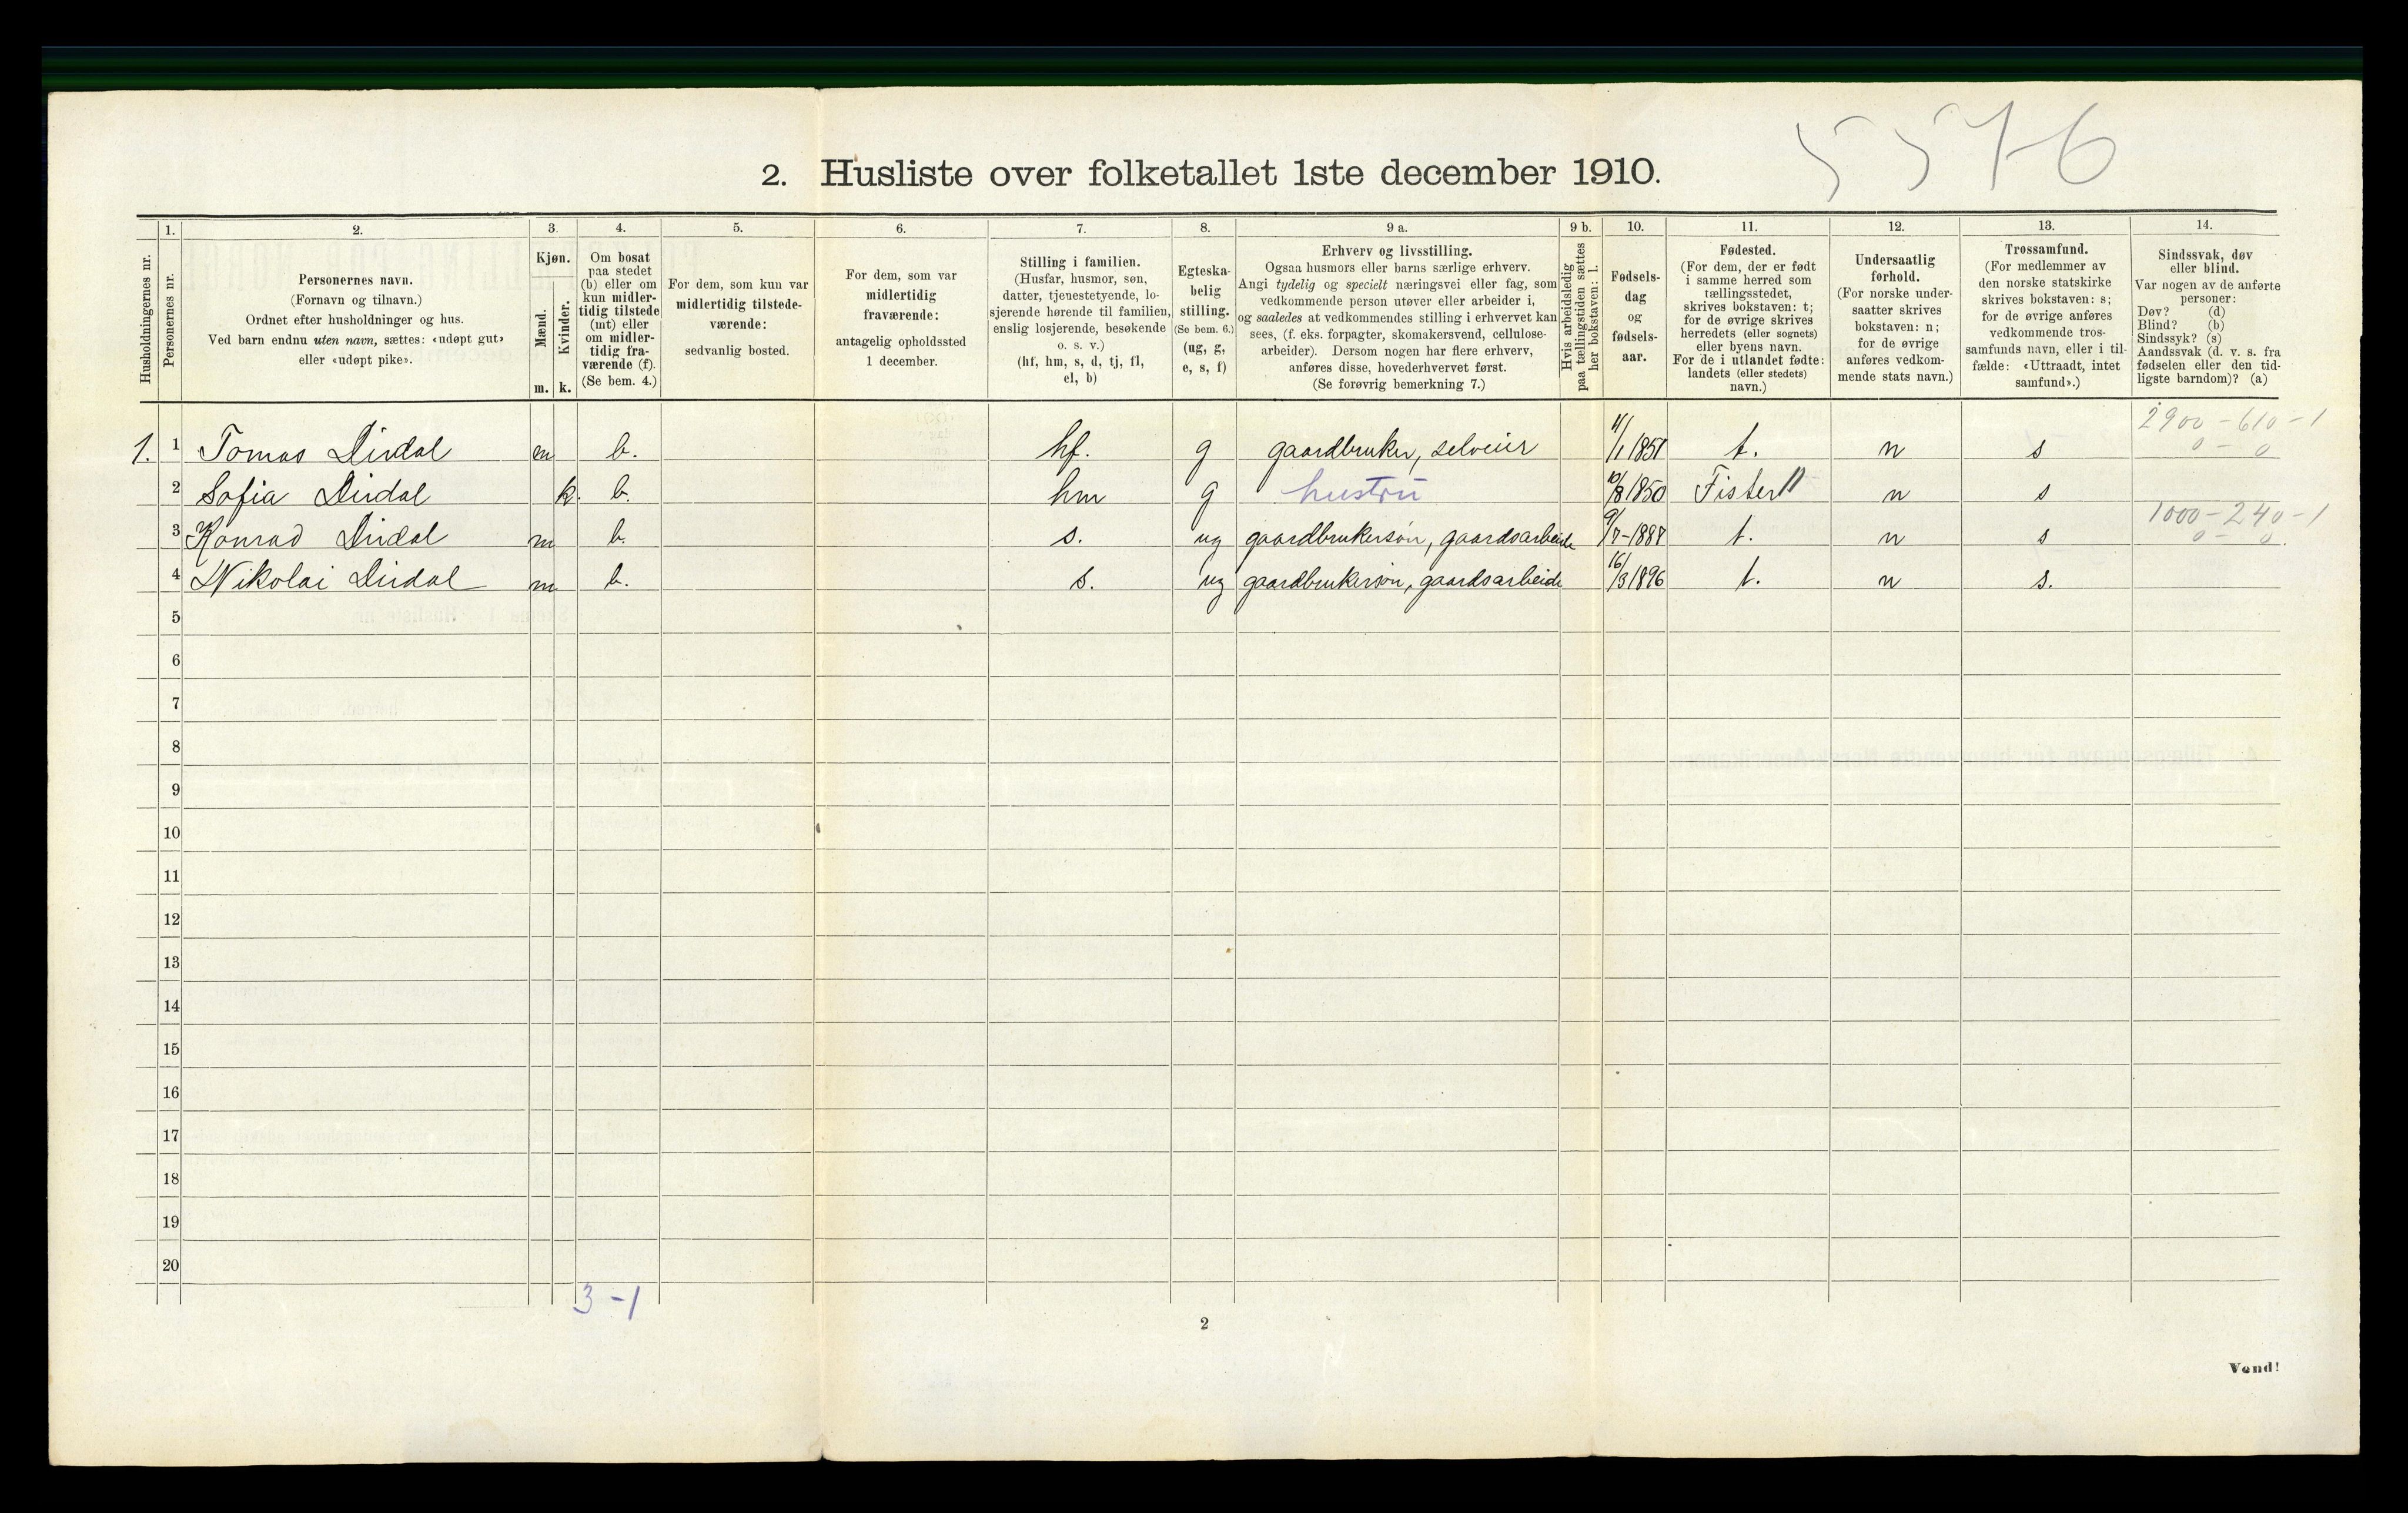 5576
2. Husliste over folketallet 1ste december 1910.
Husholdningernes nr.
1.
Personernes nr.
2.
Personernes navn.
(Fornavn og tilnavn.)
Ordnet efter husholdninger og hus.
Ved barn endnu uten navn, sættes: «udøpt gut»
eller «udøpt pike».
3.
Kjøn.
Mænd.
Kvinder.
m. k.
4.
Om bosat
paa stedet
(b) eller om
kun midler-
tidig tilstede
(mt) eller
om midler-
tidig fra-
værende (f).
(Se bem. 4.)
5.
For dem, som kun var
midlertidig tilstede-
værende:
sedvanlig bosted.
6.
For dem, som var
midlertidig
fraværende:
antagelig opholdssted
1 december.
7.
Stilling i familien.
(Husfar, husmor, søn,
datter, tjenestetyende, lo-
sjerende hørende til familien,
enslig losjerende, besøkende
o. s. v.)
(hf, hm, s, d, tj, fl,
el, b)
8.
Egteska-
belig
stilling.
(Se bem. 6.)
(ug, g,
e, s, f)
9 a.
Erhverv og livsstilling.
Ogsaa husmors eller barns særlige erhverv.
Angi tydelig og specielt næringsvei eller fag, som
vedkommende person utøver eller arbeider i,
og saaledes at vedkommendes stilling i erhvervet kan
sees, (f. eks. forpagter, skomakersvend, cellulose-
arbeider). Dersom nogen har flere erhverv,
anføres disse, hovederhvervet først.
(Se forøvrig bemerkning 7.)
9 b.
Hvis arbeidsledig
paa tællingstiden sættes
her bokstaven: l.
10.
Fødsels-
dag
og
fødsels-
aar.
11.
Fødested.
(For dem, der er født
i samme herred som
tællingsstedet,
skrives bokstaven: t;
for de øvrige skrives
herredets (eller sognets)
eller byens navn.
For de i utlandet fødte:
landets (eller stedets)
navn.)
12.
Undersaatlig
forhold.
(For norske under-
saatter skrives
bokstaven: n;
for de øvrige
anføres vedkom-
mende stats navn.)
13.
Trossamfund.
(For medlemmer av
den norske statskirke
skrives bokstaven: s;
for de øvrige anføres
vedkommende tros-
samfunds navn, eller i til-
fælde: «Uttraadt, intet
samfund».)
14.
Sindssvak, døv
eller blind.
Var nogen av de anførte
personer:
Døv? (d)
Blind? (b)
Sindssyk? (s)
Aandssvak (d. v. s. fra
fødselen eller den tid-
ligste barndom)? (a)
2900 - 610 - 1
1. 1 Tomas Dirdal m b. hf. g gaardbruker, selveier 4/1 1851 t. n s 0 - 0
2 Sofia Dirdal k. b. hm g hustru 10/8 1850 Fister n s
1000 - 240 - 1
3 Konrad Dirdal m b. s. ug gaardbrukersøn, gaardsarbeide 9/7-1887 t. n s 0 - 0.
4 Nikolai Dirdal m b. s. ug gaardbrukersøn, gaardsarbeide 16/3 1896 t. n s.
5
6
7
8
9
10
11
12
13
14
15
16
17
18
19
20
3 - 1
2
Vend!